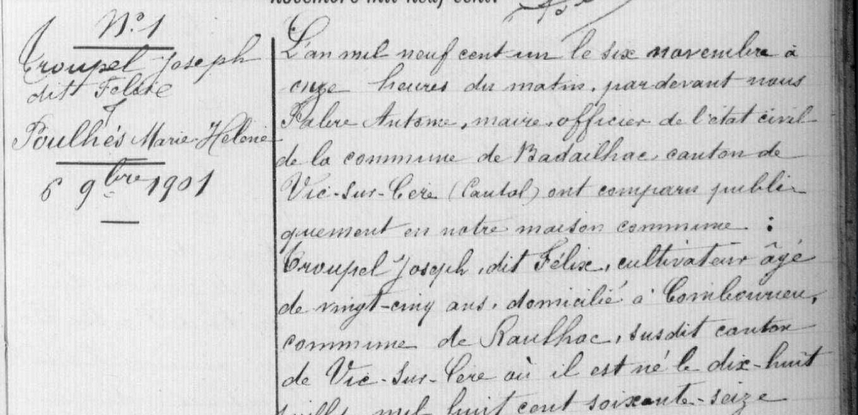 novembre mil neuf cent
N° 1
Troupel Joseph
dit Félix
&
Poulhès Marie-Hélène
6 9bre 1901
L'an mil neuf cent un le six novembre à
onze heures du matin, par devant nous
Fabre Antoine, maire, officier de l'état civil
de la commune de Badailhac, canton de
Vic-sur-Cère (Cantal) ont comparu publi-
quement en notre maison commune :
Troupel Joseph, dit Félix, cultivateur âgé
de vingt-cinq ans, domicilié à
commune de Raulhac, susdit canton
de Vic-sur-Cère où il est né le dix-huit
mil huit cent soixante-seize